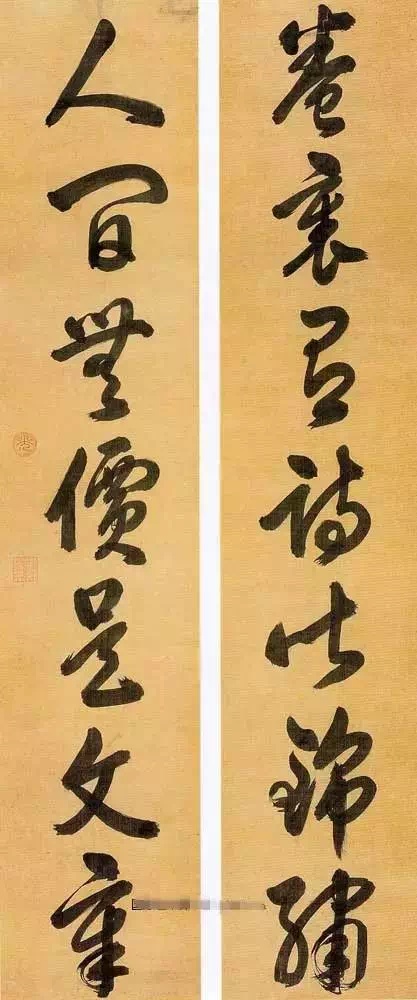 裏有詩比錦繡
人間無價是文章